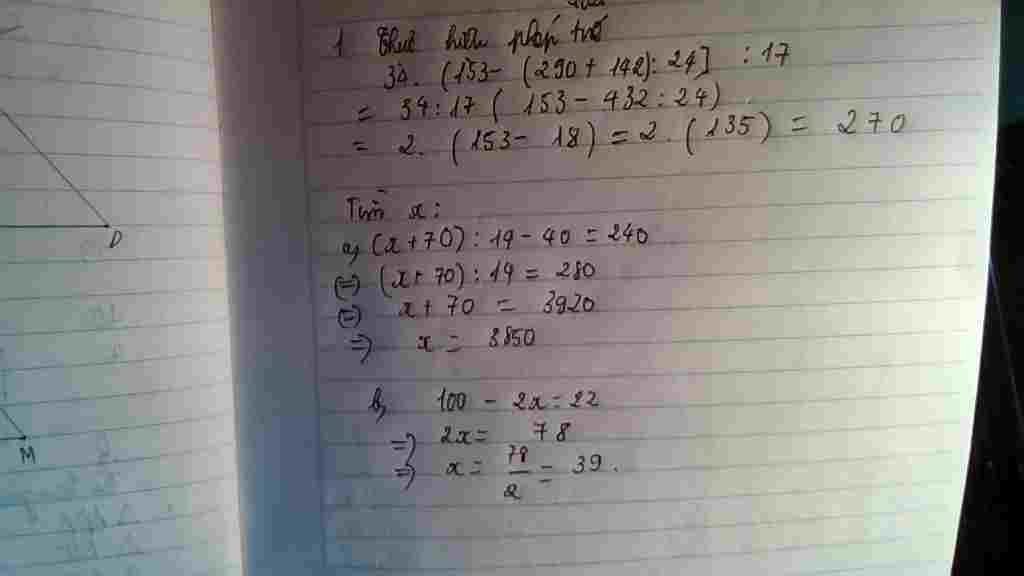 1 Thực hiện phép trừ
34. (153- (290 + 142): 24] : 17
= 34:17 ( 153 - 432 : 24)
= 2. (153 - 18) = 2. (135) = 270
Tìm x:
a, (x+70) : 14 - 40 = 240
(=) (x+70) : 14 = 280
(=) x + 70 = 3920
=) x = 3850
b, 100 - 2x = 22
=) 2x = 78
=) x = 78/2 = 39.
D
M